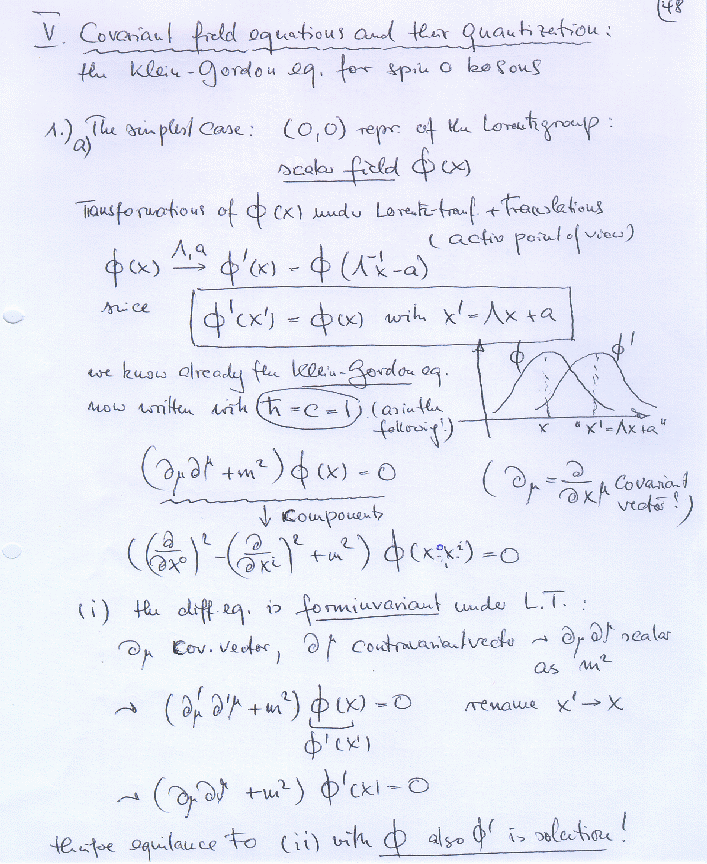 48
V. Covariant field equations and their quantization:
the Klein-Gordon eq. for spin 0 bosons
1.) a) The simplest case: (0,0) repr. of the Lorentzgroup:
scalar field ϕ(x)
Transformations of ϕ(x) under Lorentz-tranf. + Translations
(active point of view)
ϕ(x) →^{Λ,a} ϕ'(x) = ϕ(Λ⁻¹x-a)
since ϕ'(x') = ϕ(x) with x' = Λx + a
we know already the Klein-Gordon eq.
now written with ħ = c = 1 (as in the following!)
ϕ ϕ'
x "x' = Λx+a"
(∂_μ∂^μ + m²) ϕ(x) = 0 (∂_μ = ∂/∂x^μ covariant vector!)
↓ components
((∂/∂x⁰)² - (∂/∂xⁱ)² + m²) ϕ(x⁰,xⁱ) = 0
(i) the diff. eq. is forminvariant under L.T.:
∂_μ cov. vector, ∂^μ contravariant vector → ∂_μ∂^μ scalar
as m²
→ (∂'_μ∂'^μ + m²) ϕ(x) = 0 rename x' → x
ϕ'(x')
→ (∂_μ∂^μ + m²) ϕ'(x) = 0
to (ii) with ϕ also ϕ' is solution!